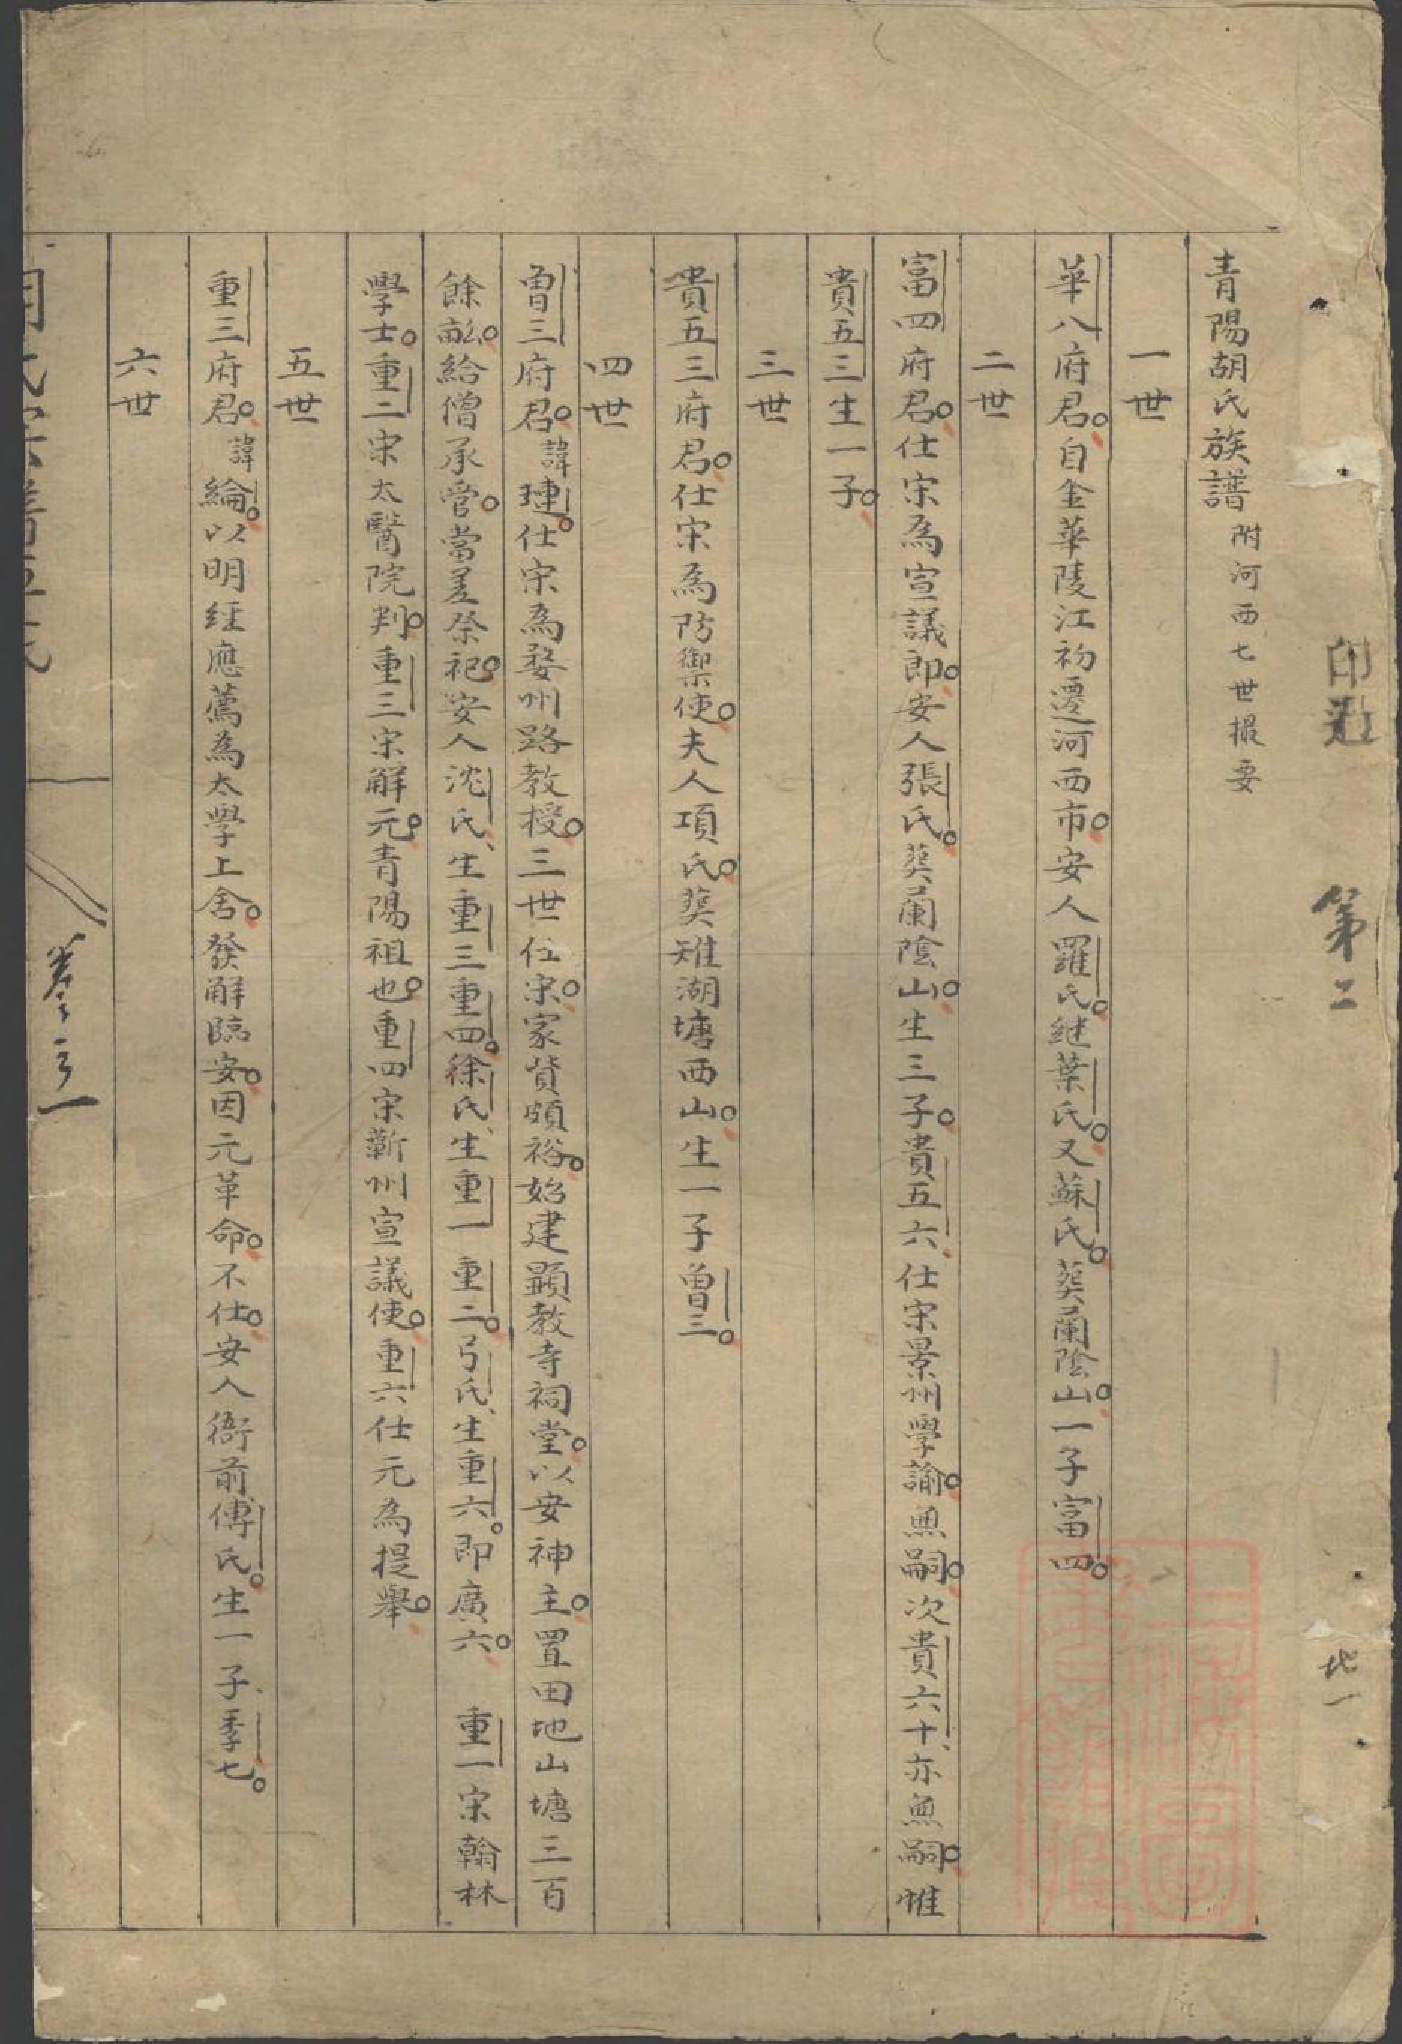 第二
地一
青陽胡氏族譜 附河西七世撮要
一世
華八府君。自金華陵江初遷河西市。安人羅氏。継葉氏。又蘇氏。葬蘭陰山。一子富四。
二世
富四府君。仕宋為宣議郎。安人張氏。葬蘭陰山。生三子。貴五六、仕宋景州學諭。無嗣。次貴六十、亦無嗣。惟
貴五三生一子。
三世
貴五三府君。仕宋為防禦使。夫人項氏。葬雉湖塘西山。生一子曾三。
四世
曾三府君。諱璉。仕宋為婺州路教授。三世仕宋。家貲頗裕。始建顯教寺祠堂。以安神主。置田地山塘三百
餘畝。給僧承管。當差祭祀。安人沈氏、生重三重四。徐氏、生重一重二。弓氏、生重六。即廣六。 重一宋翰林
學士。重二宋太醫院判。重三宋解元。青陽祖也。重四宋蘄州宣議使。重六仕元為提舉。
五世
重三府君。諱綸。以明經應薦為太學上舍。發解臨安。因元革命。不仕。安人衙前傅氏。生一子、季七。
六世
卷之一